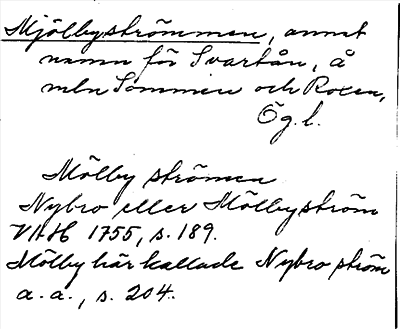 Mjölbyströmmen, annat
namn för Svartån, å
mln Sommen och Roxen,
Ög.l.
Mölby strömen
Nybro eller Mölbyström
VAH 1755, s. 189.
Mölby här kallade Nybro ström
a.a., s. 204.